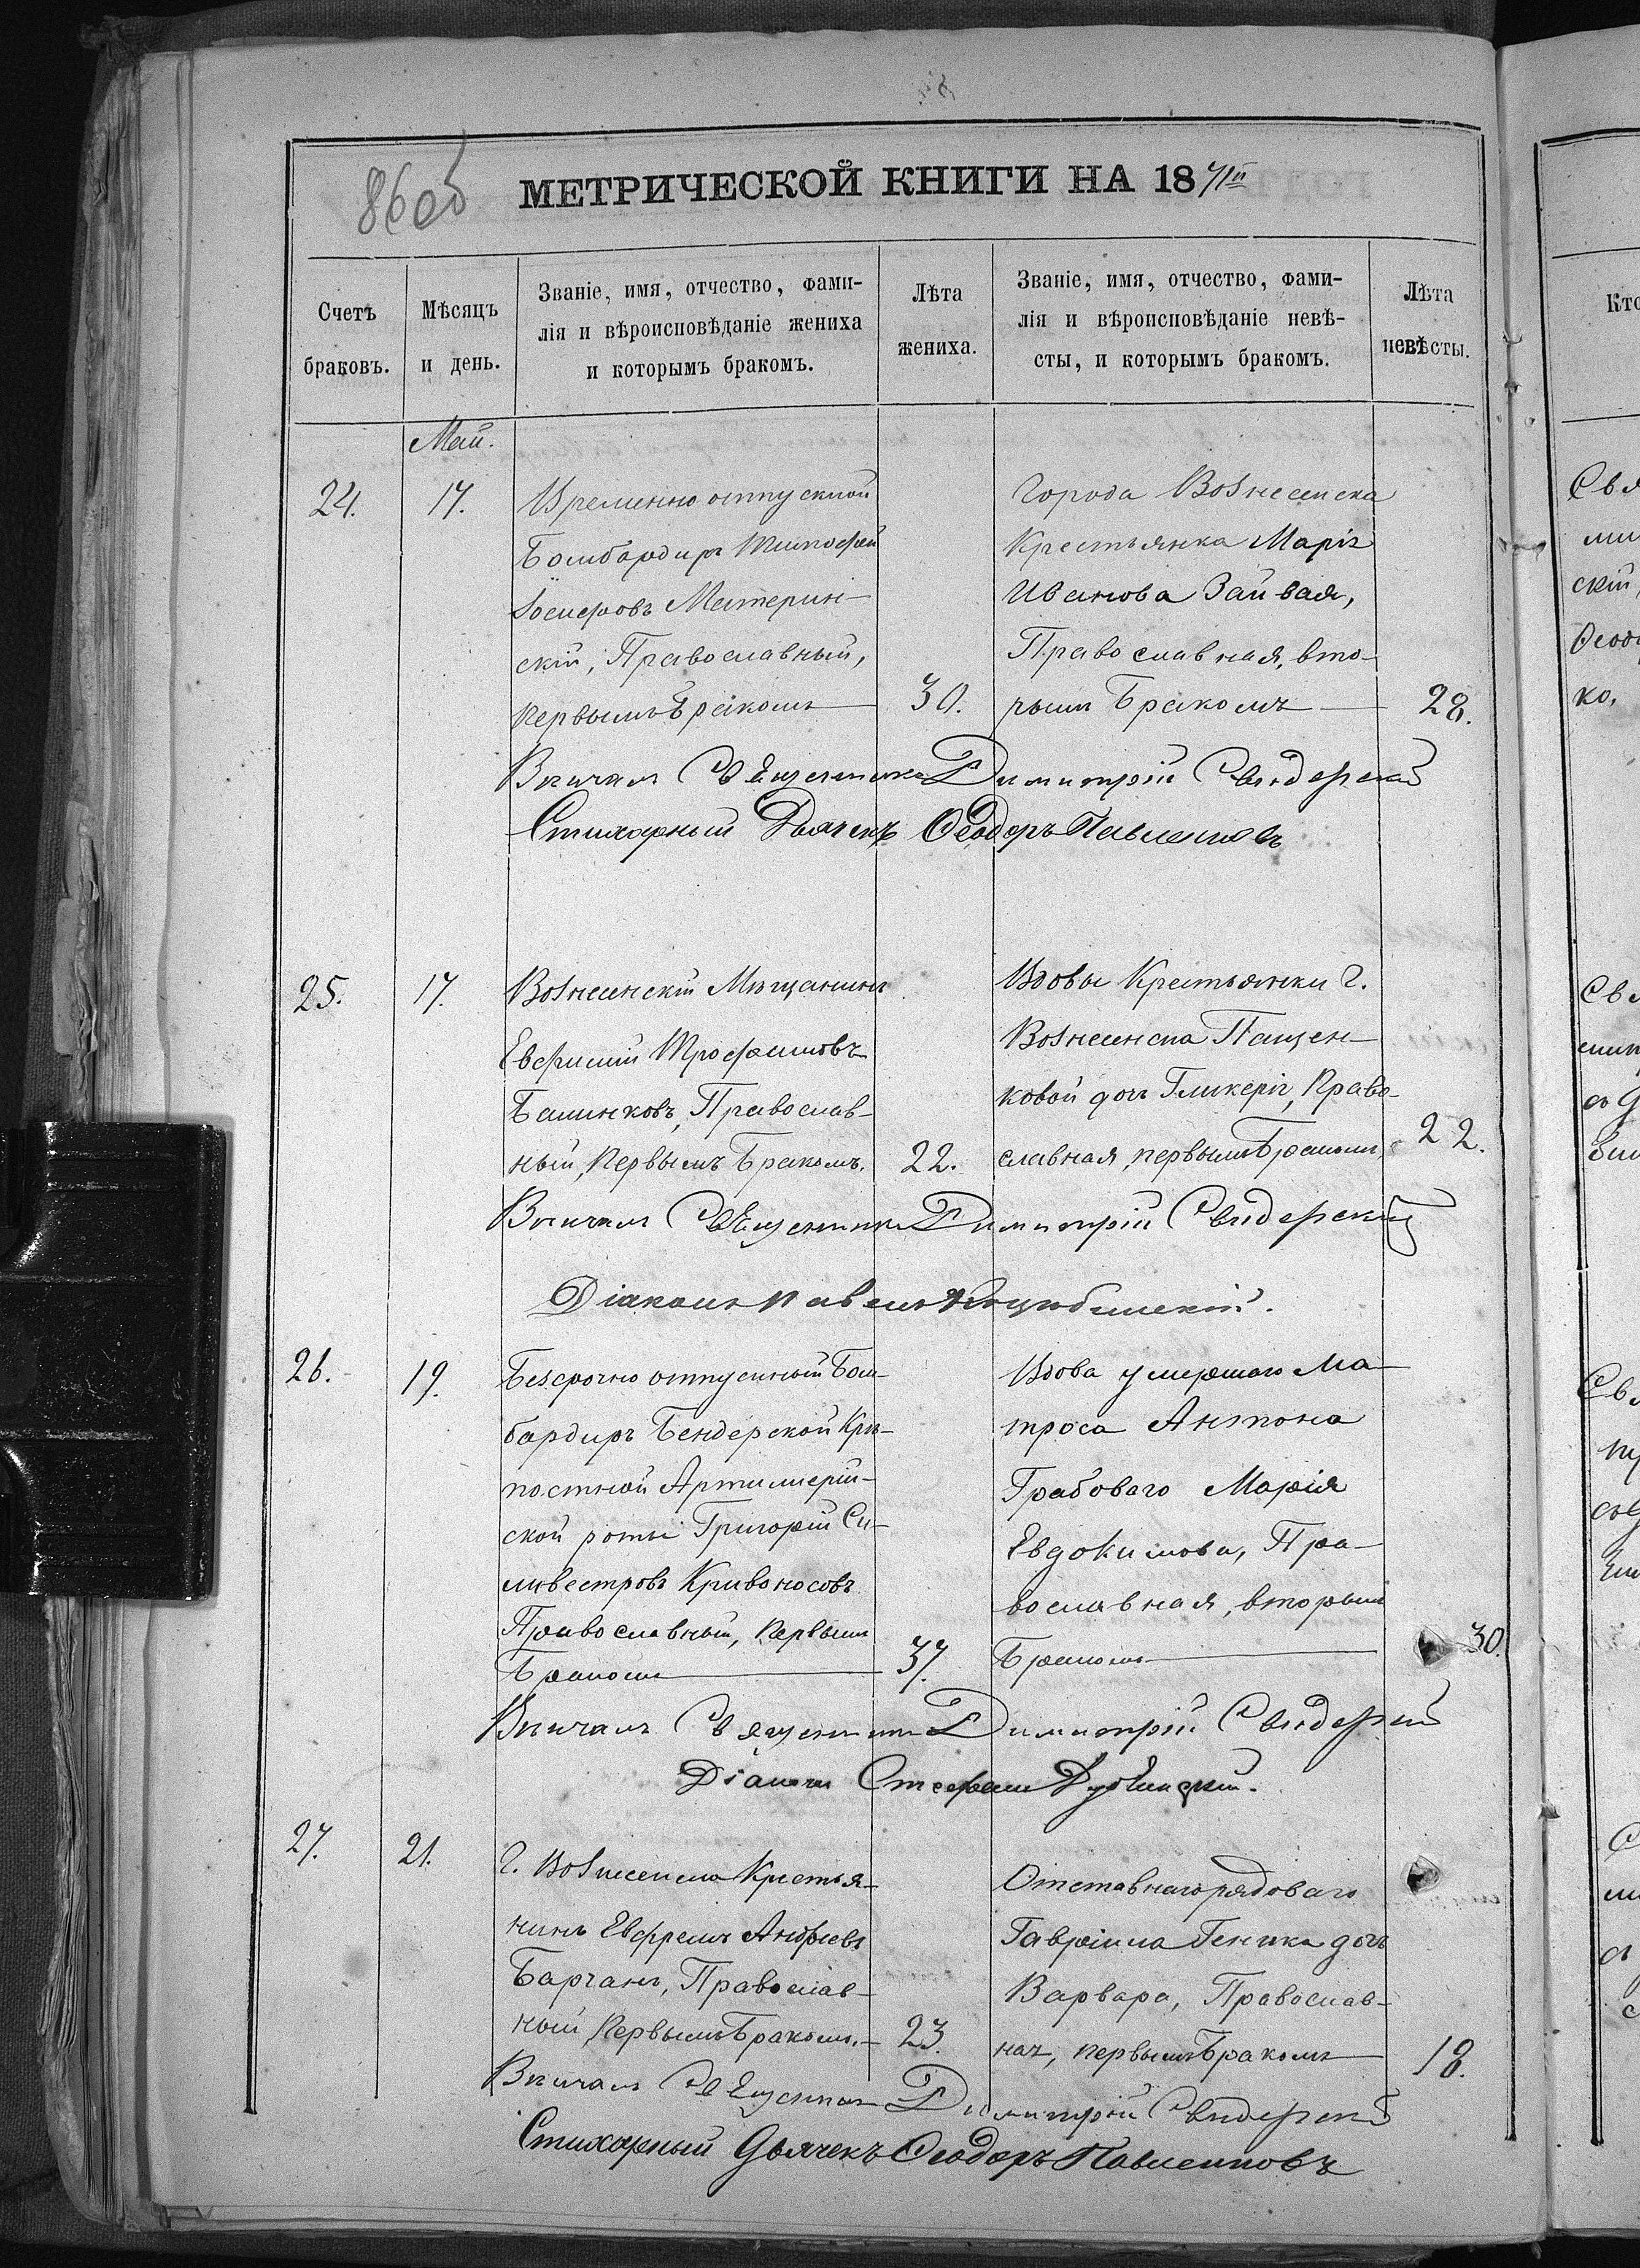 86об
МЕТРИЧЕСКОЙ КНИГИ НА 1871й
Счетъ браковъ.
Мѣсяцъ и день.
Званіе, имя, отчество, фами-
лія и вѣроисповѣданіе жениха
и которымъ бракомъ.
Лѣта
жениха.
Званіе, имя, отчество, фами-
лія и вѣроисповѣданіе невѣ-
сты, и которымъ бракомъ.
Лѣта
невѣсты.
Май.
24.
17.
Временно отпускной
Бомбардиръ Тимофей
Іосифовъ Материн-
скій, Православный,
первымъ бракомъ
30.
Города Вознесенска
Крестьянка Марія
Иванова Зайвая,
Православная, вто-
рымъ бракомъ
28.
Вѣнчалъ Священникъ Димитрій Свидерскій
Стихарный Дьячекъ Ѳеодоръ Павленковъ
25.
17.
Вознесенскій Мѣщанинъ
Евфимій Трофимовъ
Балинковъ, Православ-
ный, первымъ бракомъ.
22.
Вдовы Крестьянки г.
Вознесенска Пащен-
ковой дочь Гликерія, Право-
славная, первымъ бракомъ,
22.
Вѣнчалъ Священникъ Димитрій Свидерскій
Діаконъ Павелъ
26.
19.
Безсрочно отпускный Бом-
бардиръ Бендерской Крѣ-
постной Артиллерій-
ской роты Григорій Си-
ливестровъ Кривоносовъ
Православный, первымъ
бракомъ
37.
Вдова умершаго Ма-
троса Антона
Грабоваго Марія
Евдокимова, Пра-
вославная, вторымъ
бракомъ
30.
Вѣнчалъ Священникъ Димитрій Свидерскій
Діаконъ Стефанъ
27.
21.
г. Вознесенска Крестья-
нинъ Ефремъ Андреевъ
Барчанъ, Православ-
ный первымъ бракомъ.
23.
Отставнаго рядоваго
Гавріила Геника дочь
Варвара, Православ-
ная, первымъ бракомъ
18.
Вѣнчалъ Священникъ Димитрій Свидерскій
Стихарный Дьячекъ Ѳеодоръ Павленковъ